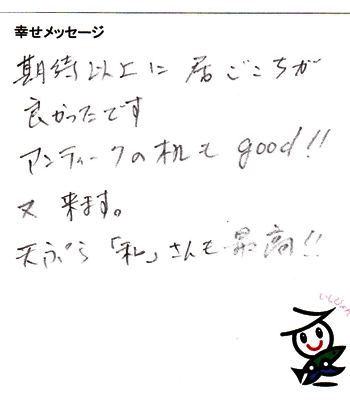 幸せメッセージ
期待以上に居ごこちが
良かったです
アンティークの机も good!!
又 来ます。
天ぷら「私」さんも最高!!